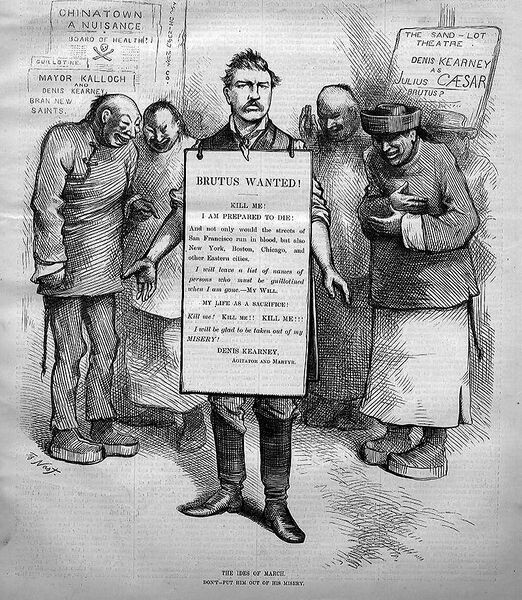 CHINATOWN
A NUISANCE.
BOARD OF HEALTH!
GUILLOTINE
MAYOR KALLOCH
AND
DENIS KEARNEY,
BRAN NEW
SAINTS.
THE SAND-LOT
THEATRE.
DENIS KEARNEY
AS
JULIUS CÆSAR
BRUTUS?
BRUTUS WANTED!
KILL ME!
I AM PREPARED TO DIE!
And not only would the streets of
San Francisco run in blood, but also
New York, Boston, Chicago, and
other Eastern cities.
I will leave a list of names of
persons who must be guillotined
when I am gone.—MY WILL.
MY LIFE AS A SACRIFICE!
Kill me! KILL ME!! KILL ME!!!
I will be glad to be taken out of my
MISERY!
DENIS KEARNEY,
AGITATOR AND MARTYR.
Th Nast
THE IDES OF MARCH.
DON'T—PUT HIM OUT OF HIS MISERY.